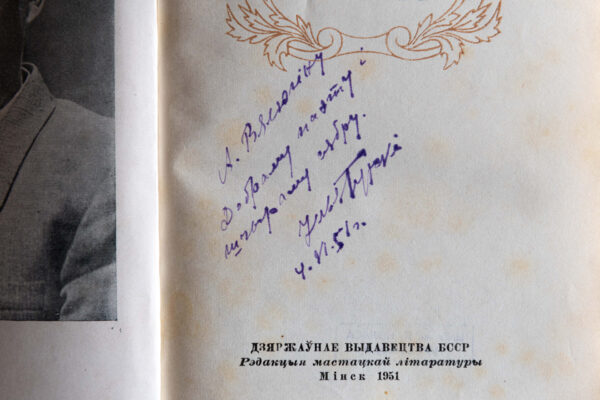 А. Вялюгіну
Добраму паэту і
шчыраму сябру.
4.VI.51 г.
ДЗЯРЖАЎНАЕ ВЫДАВЕЦТВА БССР
Рэдакцыя мастацкай літаратуры
Мінск 1951